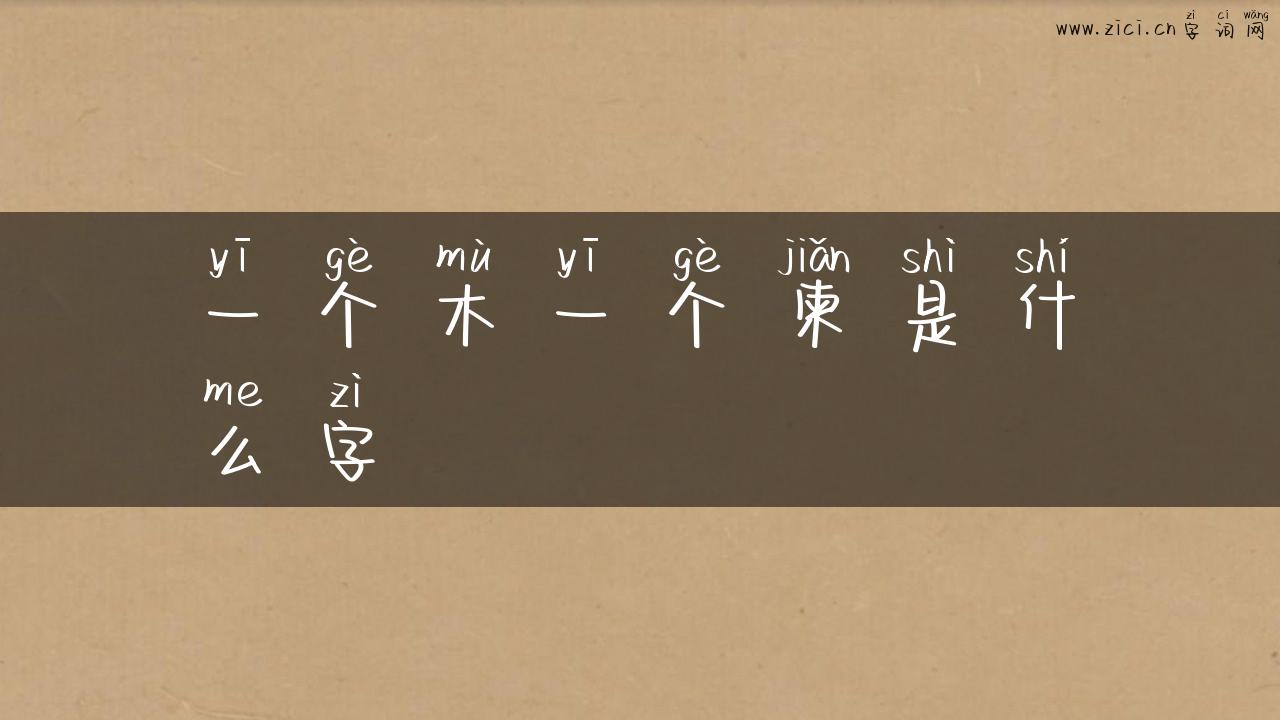 zì cí wǎng
www.zici.cn 字 词 网
yī gè mù yī gè jiǎn shì shí
一 个 木 一 个 柬 是 什
me zì
么 字